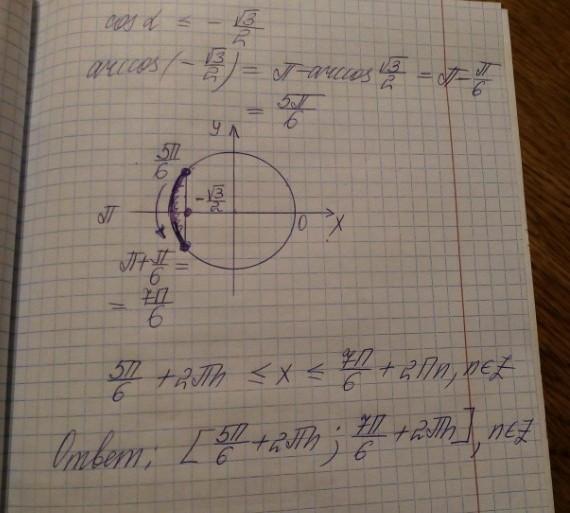 cos α ≤ - √3/2
arccos(-√3/2) = π - arccos √3/2 = π - π/6
= 5π/6
y
5π/6
-√3/2
π
0
x
π + π/6 =
= 7π/6
5π/6 + 2πn ≤ x ≤ 7π/6 + 2πn, n∈Z
Ответ: [5π/6 + 2πn; 7π/6 + 2πn], n∈Z